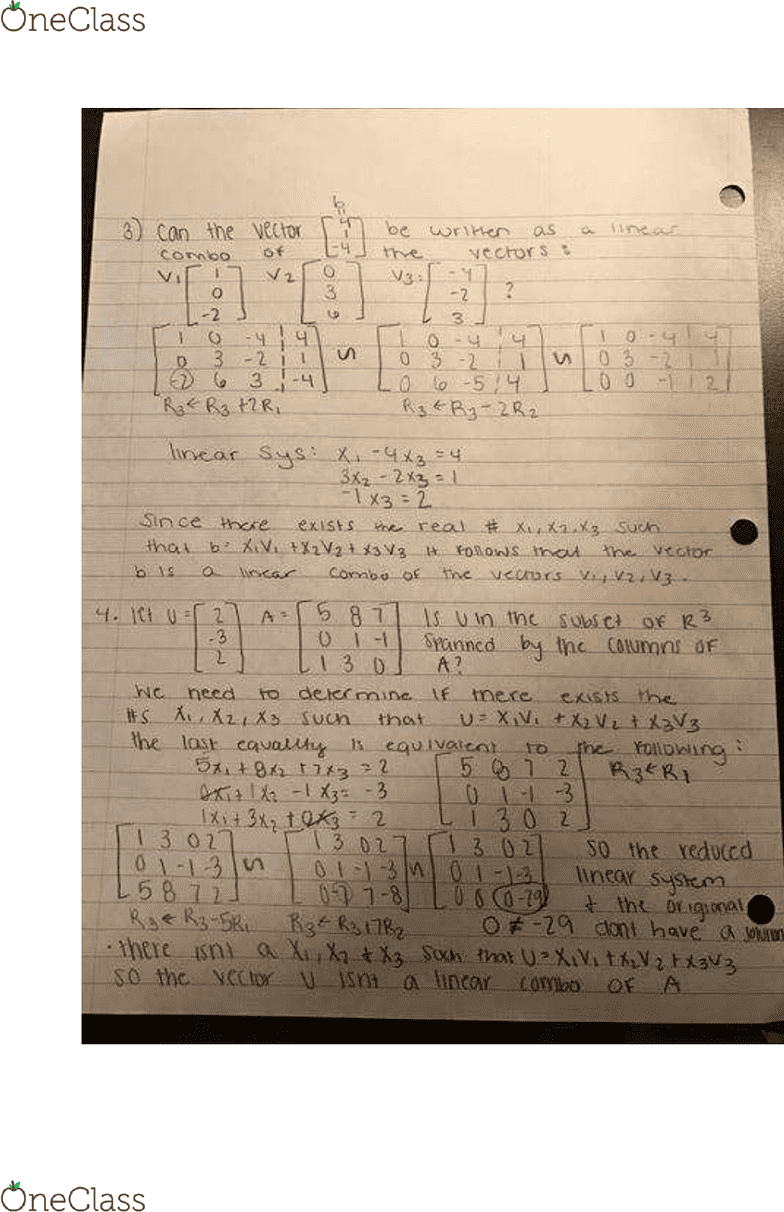 OneClass
b
3) Can the vector [4 1 -4] be written as a linear
combo of the vectors:
V1[1 0 -2] V2[0 3 6] V3:[-4 -2 3] ?
[1 0 -4 | 4 [1 0 -4 | 4 [1 0 -4 | 4
0 3 -2 | 1 ∽ 0 3 -2 | 1 ∽ 0 3 -2 | 1
-2 6 3 | -4] 0 6 -5 | 4] 0 0 -1 | 2]
R3←R3+2R1 R3←R3-2R2
linear sys: x1 -4x3 =4
3x2 -2x3 =1
-1x3 =2
Since there exists the real # x1,x2,x3 such
that b= x1V1 +x2V2+x3V3 it follows that the vector
b is a linear combo of the vectors V1, V2, V3.
4. let U=[2 -3 2] A=[5 8 7 Is U in the subset of R3
0 1 -1 spanned by the columns of
1 3 0] A?
We need to determine if there exists the
#s x1, x2, x3 such that U= x1V1 +x2V2 + x3V3
the last equality is equivalent to the following:
5x1+8x2+7x3=2 [5 8 7 2 R3←R1
0x1+1x2-1x3=-3 0 1 -1 -3
1x1+3x2+0x3=2 1 3 0 2]
[1 3 0 2 [1 3 0 2 [1 3 0 2 so the reduced
0 1 -1 -3 ∽ 0 1 -1 -3 ∽ 0 1 -1 -3 linear system
5 8 7 2] 0 -7 7 -8] 0 0 0 -29] + the origional
R3←R3-5R1 R3←R3+7R2 0≠-29 dont have a solution
·there isnt a x1, x2 + x3 such that U=x1V1+x2V2+x3V3
so the vector U isnt a linear combo of A
OneClass